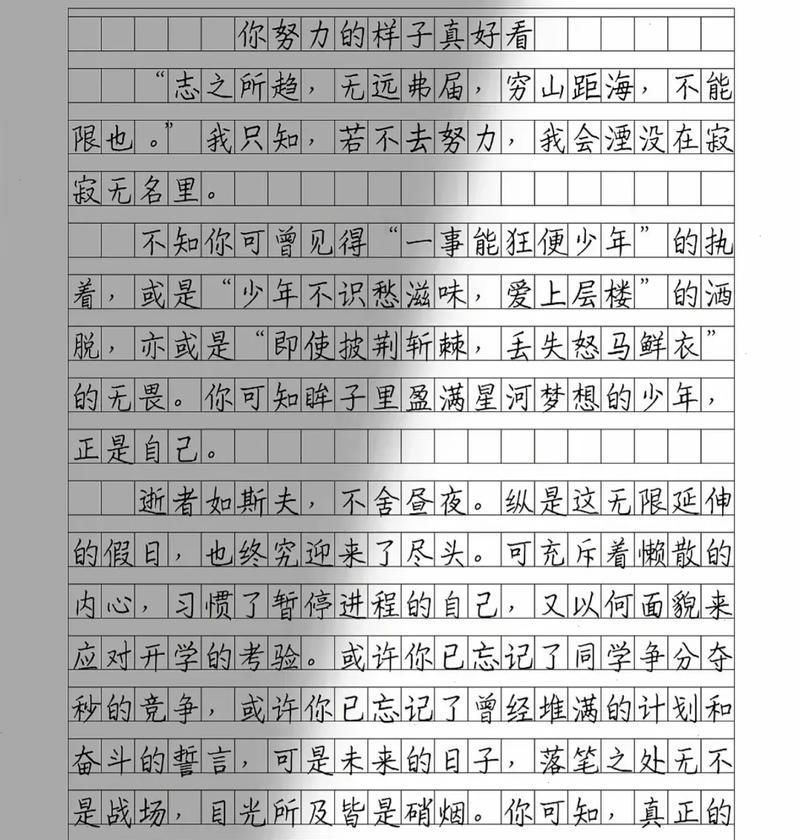 你努力的样子真好看
“志之所趋，无远弗届，穷山距海，不能
限也。”我只知，若不去努力，我会湮没在寂
寂无名里。
不知你可曾见得“一事能狂便少年”的执
着，或是“少年不识愁滋味，爱上层楼”的洒
脱，亦或是“即使披荆斩棘，丢失怒马鲜衣”
的无畏。你可知眸子里盈满星河梦想的少年，
正是自己。
逝者如斯夫，不舍昼夜。纵是这无限延伸
的假日，也终究迎来了尽头。可充斥着懒散的
内心，习惯了暂停进程的自己，又以何面貌来
应对开学的考验。或许你已忘记了同学争分夺
秒的竞争，或许你已忘记了曾经堆满的计划和
奋斗的誓言，可是未来的日子，落笔之处无不
是战场，目光所及皆是硝烟。你可知，真正的